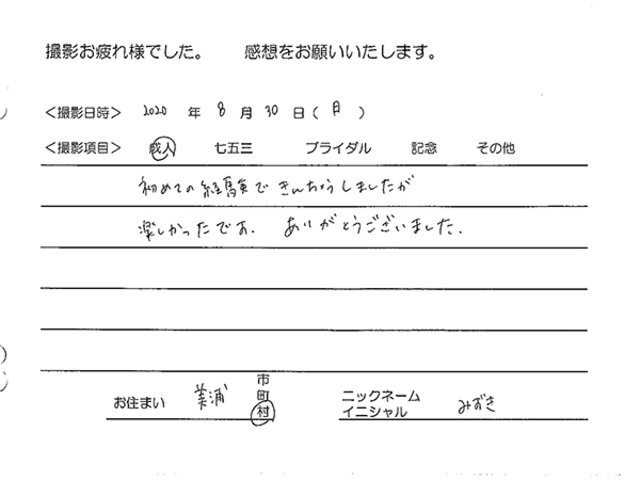 撮影お疲れ様でした。 感想をお願いいたします。
<撮影日時> 2020 年 8 月 30 日 ( 日 )
<撮影項目> 成人 七五三 ブライダル 記念 その他
初めての経験できんちょうしましたが
楽しかったです. ありがとうございました.
お住まい 美浦 市 町 村
ニックネーム
イニシャル みずき